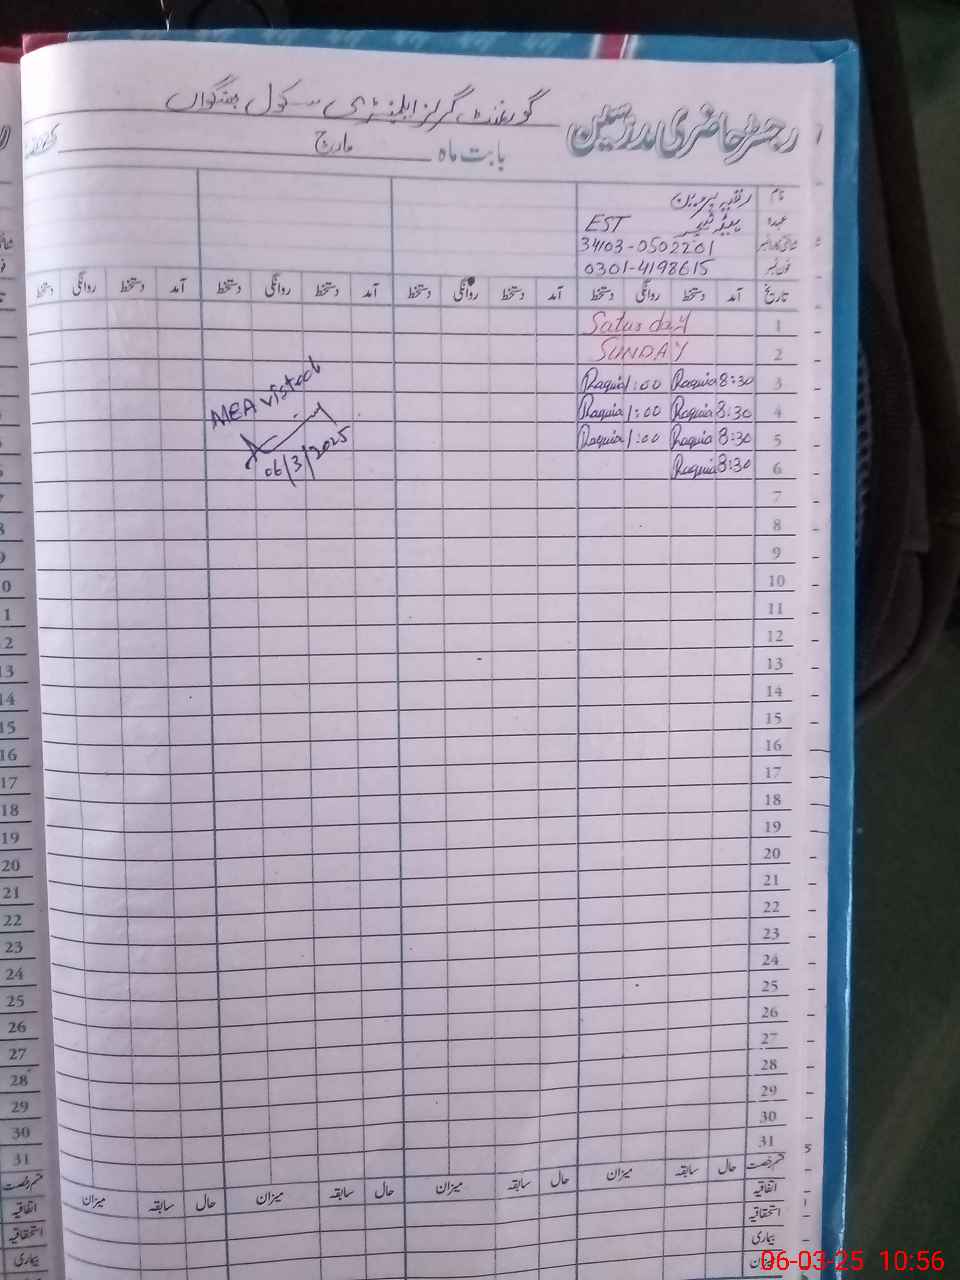 رجسٹر حاضری مدرسین گورنمنٹ گرلز ایلیمنٹری سکول
بابت ماہ مارچ
نام رقیہ پروین
عہدہ EST
شناختی کارڈ نمبر 34103-0502201
فون نمبر 0301-4198615
تاریخ آمد دستخط روانگی دستخط آمد دستخط روانگی دستخط آمد دستخط روانگی دستخط آمد دستخط روانگی دستخط
1 Saturday
2 SUNDAY
3 8:30 Raquia 1:00 Raquia
4 8:30 Raquia 1:00 Raquia
5 8:30 Raquia 1:00 Raquia
6 8:30 Raquia
MEA visted
06/3/2025
7
8
9
10
11
12
13
14
15
16
17
18
19
20
21
22
23
24
25
26
27
28
29
30
31
قسم رخصت حال سابقہ میزان حال سابقہ میزان حال سابقہ میزان حال سابقہ میزان
اتفاقیہ
استحقاقیہ
بیماری
میزان
06-03-25 10:56